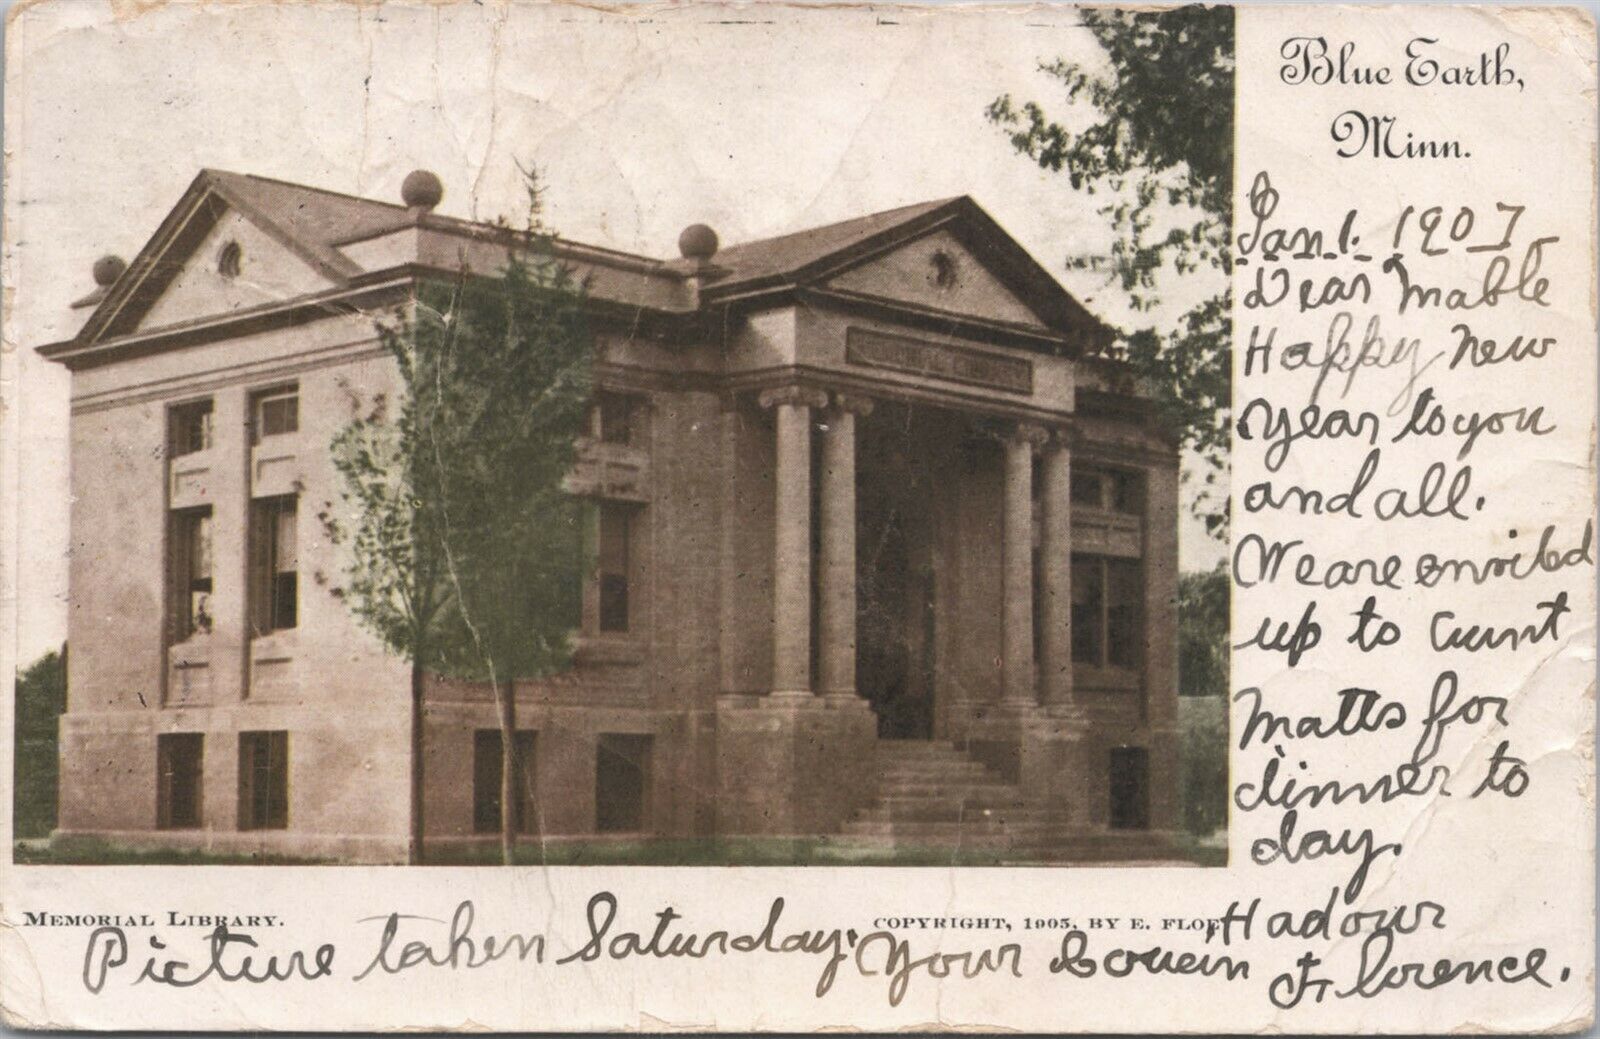 Blue Earth,
Minn.
Jan 1. 1907
Dear Mable
Happy New
Year to you
and all.
We are envited
up to Aunt
Matts for
dinner to
day.
Had our
Picture taken Saturday.
Your Cousin Florence.
MEMORIAL LIBRARY.
COPYRIGHT, 1905, BY E. FLOE